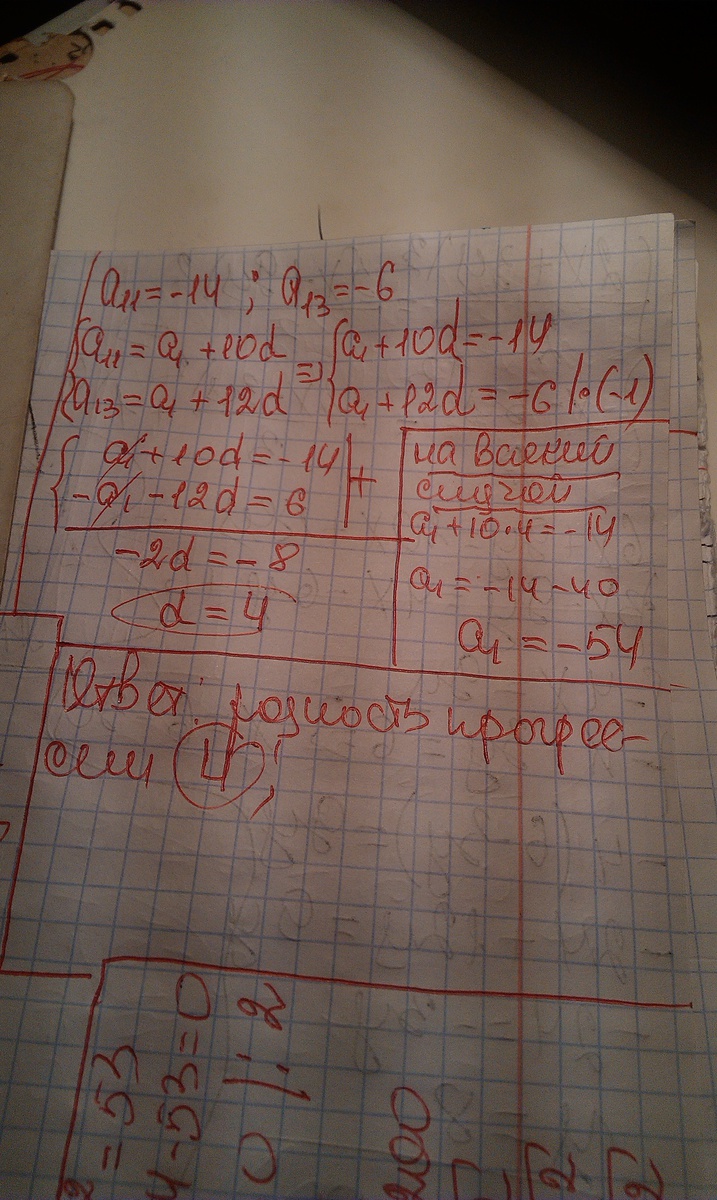 a₁₁ = -14 ; a₁₃ = -6
{a₁₁ = a₁ + 10d => {a₁ + 10d = -14
{a₁₃ = a₁ + 12d {a₁ + 12d = -6 |·(-1)
{a₁ + 10d = -14 | +
{-a₁ - 12d = 6
-2d = -8
d = 4
на всякий
случай
a₁ + 10·4 = -14
a₁ = -14 - 40
a₁ = -54
Ответ: разность прогрес-
сии 4;
2 = 53
4 - 53 = 0
0 |: 2
200
2
2